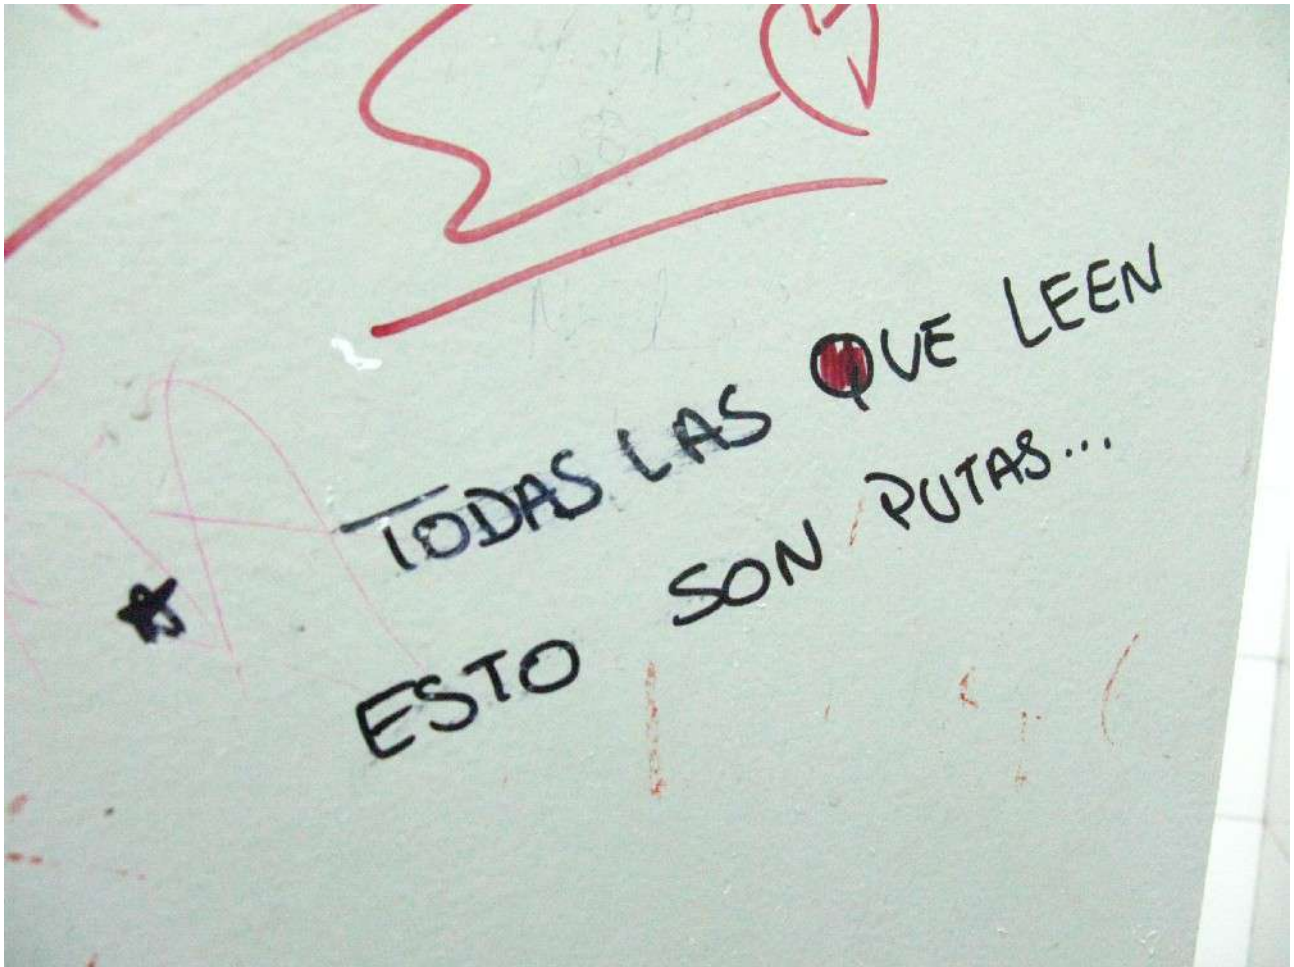 TODAS LAS QUE LEEN
ESTO SON PUTAS...